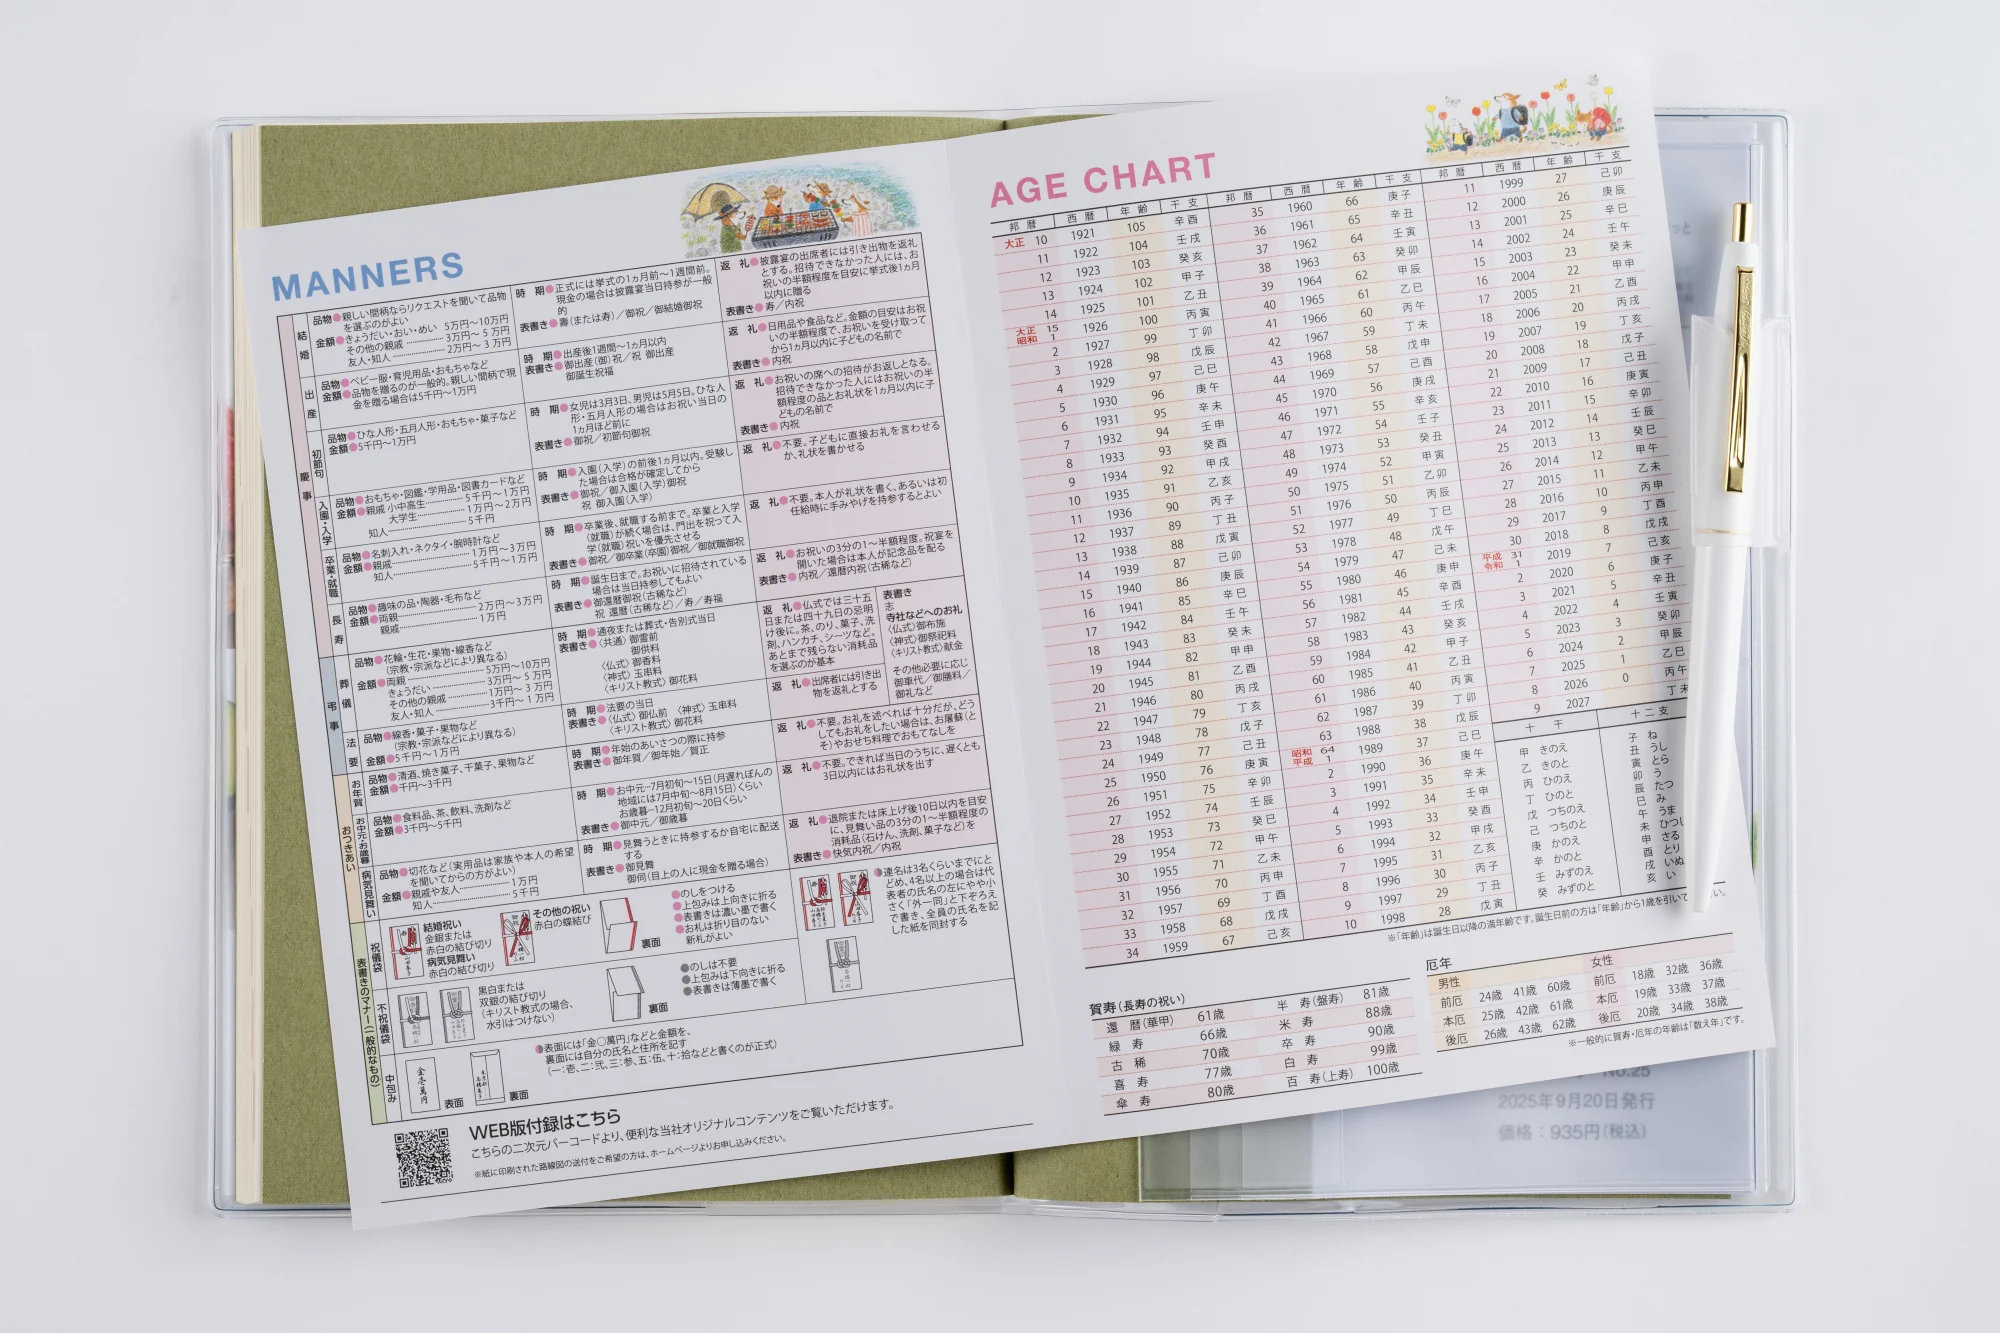 MANNERS
慶事
結婚
品物●親しい間柄ならリクエストを聞いて品物
を選ぶのがよい
金額●きょうだい・おい・めい 5万円〜10万円
その他の親戚 3万円〜5万円
友人・知人 2万円〜3万円
時期●正式には挙式の1ヵ月前〜1週間前。
現金の場合は披露宴当日持参が一般
的
表書き●壽(または寿)/御祝/御結婚御祝
返礼●披露宴の出席者には引き出物を返礼
とする。招待できなかった人には、お
祝いの半額程度を目安に挙式後1ヵ月
以内に贈る
表書き●寿/内祝
出産
品物●ベビー服・育児用品・おもちゃなど
金額●品物を贈るのが一般的。親しい間柄で現
金を贈る場合は5千円〜1万円
時期●出産後1週間〜1ヵ月以内
表書き●御出産(御)祝/祝 御出産
御誕生祝福
返礼●日用品や食品など。金額の目安はお祝
いの半額程度で、お祝いを受け取って
から1ヵ月以内に子どもの名前で
表書き●内祝
初節句
品物●ひな人形・五月人形・おもちゃ・菓子など
金額●5千円〜1万円
時期●女児は3月3日、男児は5月5日。ひな人
形・五月人形の場合はお祝い当日の
1ヵ月ほど前に
表書き●御祝/初節句御祝
返礼●お祝いの席への招待がお返しとなる。
招待できなかった人にはお祝いの半
額程度の品とお礼状を1ヵ月以内に子
どもの名前で
表書き●内祝
入園・入学
品物●おもちゃ・図鑑・学用品・図書カードなど
金額●親戚 小中高生 5千円〜1万円
大学生 1万円〜2万円
知人 5千円
時期●入園(入学)の前後1ヵ月以内。受験し
た場合は合格が確定してから
表書き●御祝/御入園(入学)御祝
祝 御入園(入学)
返礼●不要。子どもに直接お礼を言わせる
か、礼状を書かせる
卒業・就職
品物●名刺入れ・ネクタイ・腕時計など
金額●親戚 1万円〜3万円
知人 5千円〜1万円
時期●卒業後、就職する前まで。卒業と入学
(就職)が続く場合は、門出を祝って入
学(就職)祝いを優先させる
表書き●御祝/御卒業(卒園)御祝/御就職御祝
返礼●不要。本人が礼状を書く、あるいは初
任給時に手みやげを持参するとよい
長寿
品物●趣味の品・陶器・毛布など
金額●両親 2万円〜3万円
親戚 1万円
時期●誕生日まで。お祝いに招待されている
場合は当日持参してもよい
表書き●御還暦御祝(古稀など)
祝 還暦(古稀など)/寿/寿福
返礼●お祝いの3分の1〜半額程度。祝宴を
開いた場合は本人が記念品を配る
表書き●内祝/還暦内祝(古稀など)
弔事
葬儀
品物●花輪・生花・果物・線香など
(宗教・宗派などにより異なる)
金額●両親 5万円〜10万円
きょうだい 3万円〜5万円
その他の親戚 1万円〜3万円
友人・知人 3千円〜1万円
時期●通夜または葬式・告別式当日
表書き●〈共通〉御霊前
御供料
〈仏式〉御香料
〈神式〉玉串料
〈キリスト教式〉御花料
返礼●仏式では三十五
日または四十九日の忌明
け後に。茶、のり、菓子、洗
剤、ハンカチ、シーツなど。
あとまで残らない消耗品
を選ぶのが基本
表書き
志
寺社などへのお礼
〈仏式〉御布施
〈神式〉御祭祀料
〈キリスト教式〉献金
その他必要に応じ
御車代/御膳料/
御礼など
法要
品物●線香・菓子・果物など
(宗教・宗派などにより異なる)
金額●5千円〜1万円
時期●法要の当日
表書き●〈仏式〉御仏前 〈神式〉玉串料
〈キリスト教式〉御花料
返礼●出席者には引き出
物を返礼とする
おつきあい
お年賀
品物●清酒、焼き菓子、干菓子、果物など
金額●千円〜3千円
時期●年始のあいさつの際に持参
表書き●御年賀/御年始/賀正
返礼●不要。お礼を述べれば十分だが、どう
してもお礼をしたい場合は、お屠蘇(と
そ)やおせち料理でおもてなしを
お中元・お歳暮
品物●食料品、茶、飲料、洗剤など
金額●3千円〜5千円
時期●お中元…7月初旬〜15日(月遅れぼんの
地域には7月中旬〜8月15日)くらい
お歳暮…12月初旬〜20日くらい
表書き●御中元/御歳暮
返礼●不要。できれば当日のうちに、遅くとも
3日以内にはお礼状を出す
病気見舞い
品物●切花など(実用品は家族や本人の希望
を聞いてからの方がよい)
金額●親戚や友人 1万円
知人 5千円
時期●見舞うときに持参するか自宅に配送
する
表書き●御見舞
御伺(目上の人に現金を贈る場合)
返礼●退院または床上げ後10日以内を目安
に、見舞い品の3分の1〜半額程度の
消耗品(石けん、洗剤、菓子など)を
表書き●快気内祝/内祝
表書きのマナー(一般的なもの)
祝儀袋
結婚祝い
金銀または
赤白の結び切り
病気見舞い
赤白の結び切り
その他の祝い
赤白の蝶結び
裏面
●のしをつける
●上包みは上向きに折る
●表書きは濃い墨で書く
●お札は折り目のない
新札がよい
●連名は3名くらいまでにと
どめ、4名以上の場合は代
表者の氏名の左にやや小
さく「外一同」と下ぞろえ
で書き、全員の氏名を記
した紙を同封する
不祝儀袋
黒白または
双銀の結び切り
(キリスト教式の場合、
水引はつけない)
裏面
●のしは不要
●上包みは下向きに折る
●表書きは薄墨で書く
中包み
金壱萬円
表面
裏面
●表面には「金〇萬円」などと金額を、
裏面には自分の氏名と住所を記す
(一:壱、二:弐、三:参、五:伍、十:拾などと書くのが正式)
WEB版付録はこちら
こちらの二次元バーコードより、便利な当社オリジナルコンテンツをご覧いただけます。
※紙に印刷された路線図の送付をご希望の方は、ホームページよりお申し込みください。
AGE CHART
邦暦 西暦 年齢 干支
大正 10 1921 105 辛酉
11 1922 104 壬戌
12 1923 103 癸亥
13 1924 102 甲子
14 1925 101 乙丑
大正 15 昭和 1 1926 100 丙寅
2 1927 99 丁卯
3 1928 98 戊辰
4 1929 97 己巳
5 1930 96 庚午
6 1931 95 辛未
7 1932 94 壬申
8 1933 93 癸酉
9 1934 92 甲戌
10 1935 91 乙亥
11 1936 90 丙子
12 1937 89 丁丑
13 1938 88 戊寅
14 1939 87 己卯
15 1940 86 庚辰
16 1941 85 辛巳
17 1942 84 壬午
18 1943 83 癸未
19 1944 82 甲申
20 1945 81 乙酉
21 1946 80 丙戌
22 1947 79 丁亥
23 1948 78 戊子
24 1949 77 己丑
25 1950 76 庚寅
26 1951 75 辛卯
27 1952 74 壬辰
28 1953 73 癸巳
29 1954 72 甲午
30 1955 71 乙未
31 1956 70 丙申
32 1957 69 丁酉
33 1958 68 戊戌
34 1959 67 己亥
邦暦 西暦 年齢 干支
35 1960 66 庚子
36 1961 65 辛丑
37 1962 64 壬寅
38 1963 63 癸卯
39 1964 62 甲辰
40 1965 61 乙巳
41 1966 60 丙午
42 1967 59 丁未
43 1968 58 戊申
44 1969 57 己酉
45 1970 56 庚戌
46 1971 55 辛亥
47 1972 54 壬子
48 1973 53 癸丑
49 1974 52 甲寅
50 1975 51 乙卯
51 1976 50 丙辰
52 1977 49 丁巳
53 1978 48 戊午
54 1979 47 己未
55 1980 46 庚申
56 1981 45 辛酉
57 1982 44 壬戌
58 1983 43 癸亥
59 1984 42 甲子
60 1985 41 乙丑
61 1986 40 丙寅
62 1987 39 丁卯
63 1988 38 戊辰
昭和 64 平成 1 1989 37 己巳
2 1990 36 庚午
3 1991 35 辛未
4 1992 34 壬申
5 1993 33 癸酉
6 1994 32 甲戌
7 1995 31 乙亥
8 1996 30 丙子
9 1997 29 丁丑
10 1998 28 戊寅
邦暦 西暦 年齢 干支
11 1999 27 己卯
12 2000 26 庚辰
13 2001 25 辛巳
14 2002 24 壬午
15 2003 23 癸未
16 2004 22 甲申
17 2005 21 乙酉
18 2006 20 丙戌
19 2007 19 丁亥
20 2008 18 戊子
21 2009 17 己丑
22 2010 16 庚寅
23 2011 15 辛卯
24 2012 14 壬辰
25 2013 13 癸巳
26 2014 12 甲午
27 2015 11 乙未
28 2016 10 丙申
29 2017 9 丁酉
30 2018 8 戊戌
平成 31 令和 1 2019 7 己亥
2 2020 6 庚子
3 2021 5 辛丑
4 2022 4 壬寅
5 2023 3 癸卯
6 2024 2 甲辰
7 2025 1 乙巳
8 2026 0 丙午
9 2027 丁未
十干
甲 きのえ
乙 きのと
丙 ひのえ
丁 ひのと
戊 つちのえ
己 つちのと
庚 かのえ
辛 かのと
壬 みずのえ
癸 みずのと
十二支
子 ね
丑 うし
寅 とら
卯 う
辰 たつ
巳 み
午 うま
未 ひつじ
申 さる
酉 とり
戌 いぬ
亥 い
※「年齢」は誕生日以降の満年齢です。誕生日前の方は「年齢」から1歳を引いて
賀寿(長寿の祝い)
還暦(華甲) 61歳
緑寿 66歳
古稀 70歳
喜寿 77歳
傘寿 80歳
半寿(盤寿) 81歳
米寿 88歳
卒寿 90歳
白寿 99歳
百寿(上寿) 100歳
厄年
男性
前厄 24歳 41歳 60歳
本厄 25歳 42歳 61歳
後厄 26歳 43歳 62歳
女性
前厄 18歳 32歳 36歳
本厄 19歳 33歳 37歳
後厄 20歳 34歳 38歳
※一般的に賀寿・厄年の年齢は「数え年」です。
No.25
2025年9月20日発行
価格：935円(税込)